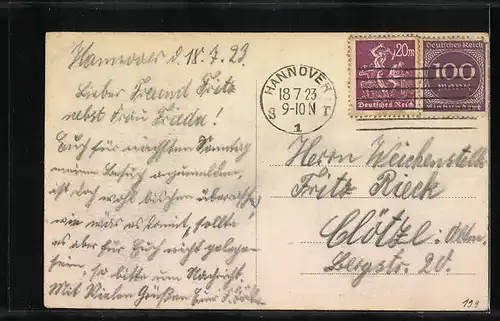 Hannover d. 18.7.23.
Lieber Freund Fritz
nebst Frau Frieda!
Euch für nächsten Sonntag
meinen Besuch
ist doch wohl bischen
wie wäre es damit, sollte
es aber für Euch nicht gelegen
sein, so bitte um Nachricht.
Mit Vielen Grüßen Euer
HANNOVER
18 7 23
9-10 N
S T
1
20m
Deutsches Reich
Deutsches Reich
100
mark
Herrn Weichenstell.
Fritz Rieck
Clötze
Bergstr. 20.
193